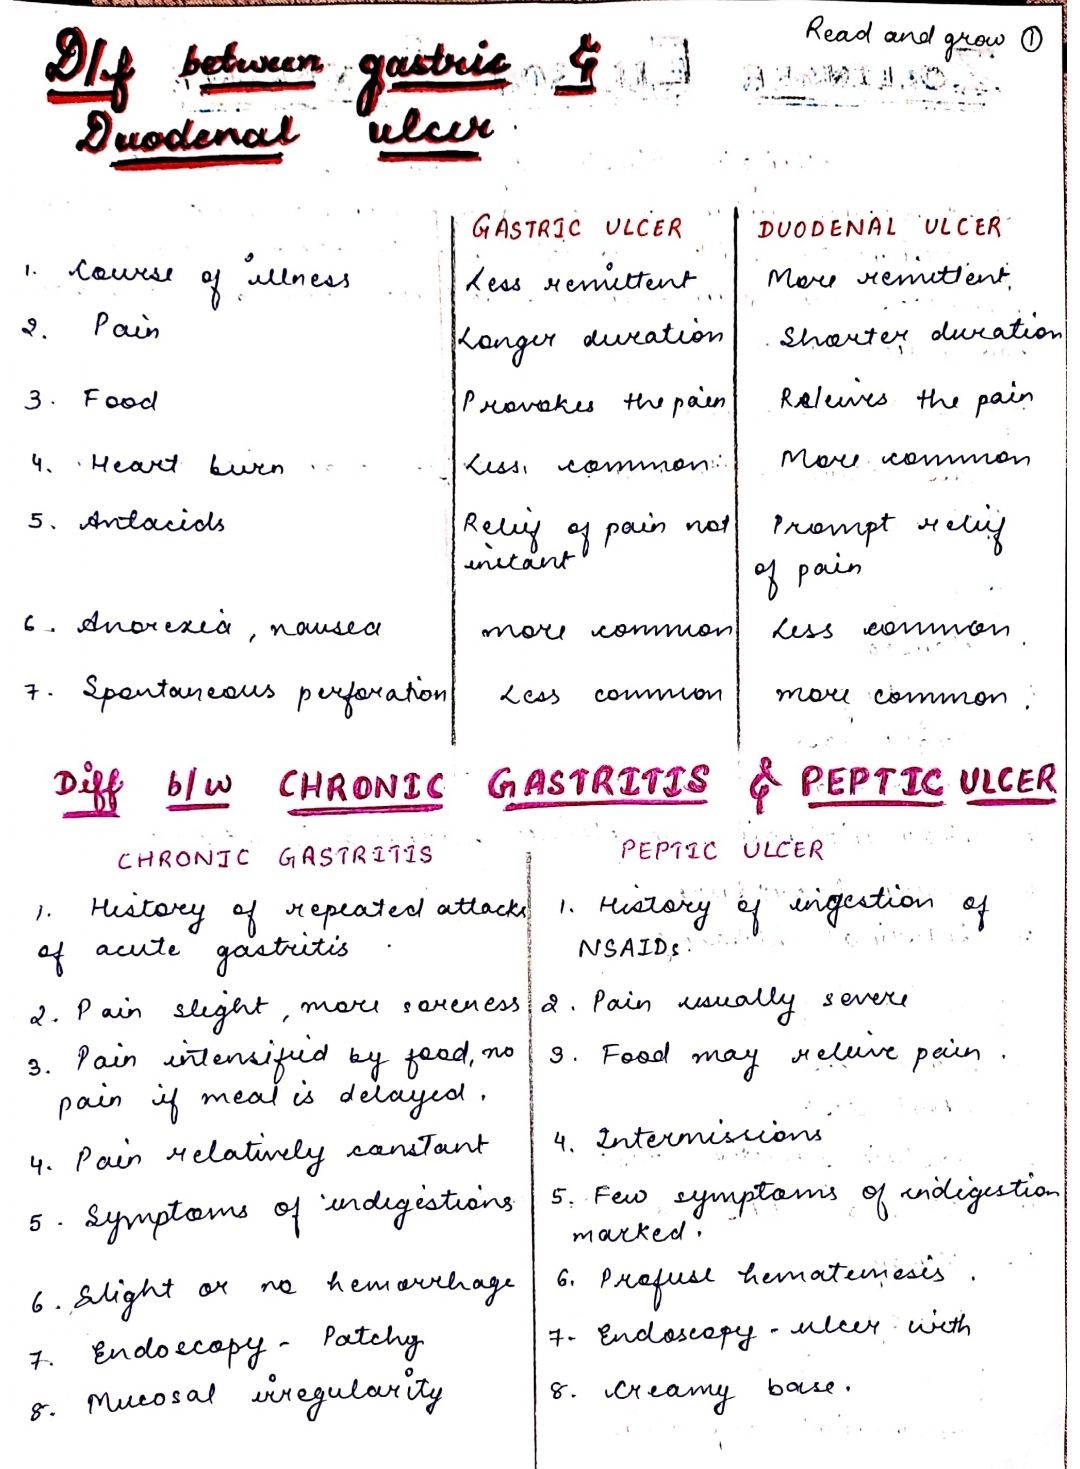 Read and grow ①
D/f between gastric &
Duodenal ulcer
GASTRIC ULCER DUODENAL ULCER
1. Course of illness Less remittent More remittent
2. Pain Longer duration Shorter duration
3. Food Provokes the pain Releives the pain
4. Heart burn Less common More common
5. Antacids Relief of pain not Prompt relief
instant of pain
6. Anorexia, nausea more common Less common
7. Spontaneous perforation Less common more common
Diff b/w CHRONIC GASTRITIS & PEPTIC ULCER
CHRONIC GASTRITIS PEPTIC ULCER
1. History of repeated attacks 1. History of ingestion of
of acute gastritis NSAIDs
2. Pain slight, more soreness 2. Pain usually severe
3. Pain intensified by food, no 3. Food may releive pain.
pain if meal is delayed.
4. Pain relatively constant 4. Intermissions
5. Symptoms of indigestions 5. Few symptoms of indigestion
marked.
6. Slight or no hemorrhage 6. Profuse hematemesis.
7. Endoscopy - Patchy 7- Endoscopy - ulcer with
8. Mucosal irregularity 8. creamy base.